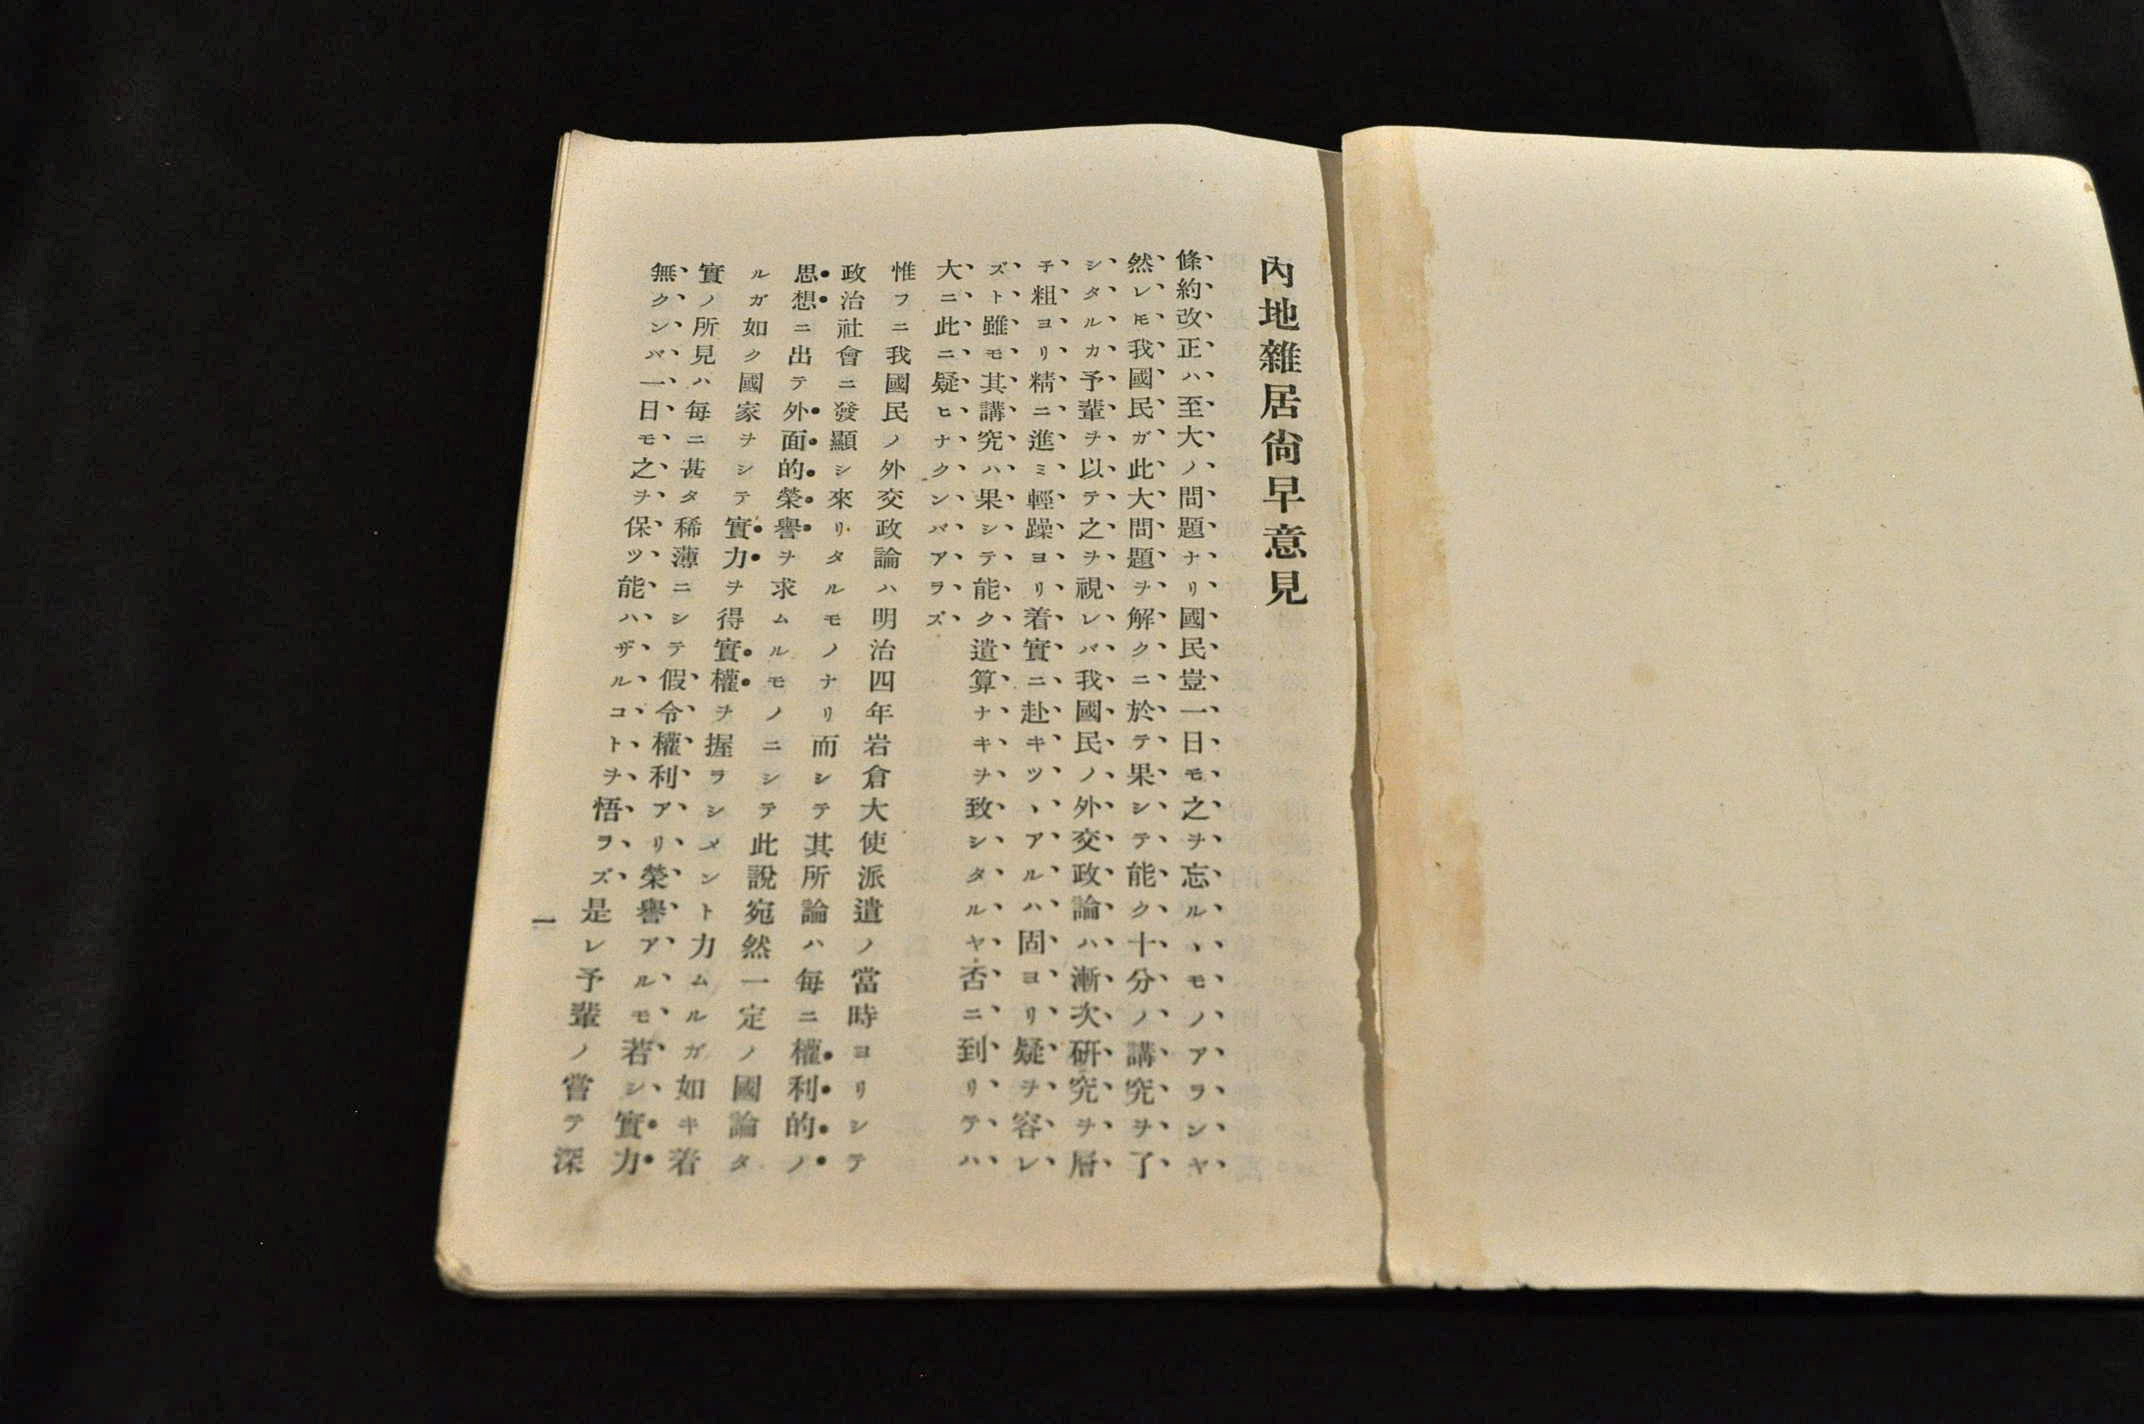 內地雜居尙早意見
條約改正ハ至大ノ問題ナリ國民豈一日モ之ヲ忘ルヽモノアランヤ
然レ𪜈我國民ガ此大問題ヲ解クニ於テ果シテ能ク十分ノ講究ヲ了
シタルカ予輩ヲ以テ之ヲ視レバ我國民ノ外交政論ハ漸次硏究ヲ層
子粗ヨリ精ニ進ミ輕躁ヨリ着實ニ赴キツヽアルハ固ヨリ疑ヲ容レ
ズト雖モ其講究ハ果シテ能ク遺算ナキヲ致シタルヤ否ニ到リテハ
大ニ此ニ疑ヒナクンバアラズ
惟フニ我國民ノ外交政論ハ明治四年岩倉大使派遣ノ當時ヨリシテ
政治社會ニ發顯シ來リタルモノナリ而シテ其所論ハ每ニ權利的ノ
思想ニ出テ外面的榮譽ヲ求ムルモノニシテ此說宛然一定ノ國論タ
ルガ如ク國家ヲシテ實力ヲ得實權ヲ握ラシメント力ムルガ如キ着
實ノ所見ハ每ニ甚タ稀薄ニシテ假令權利アリ榮譽アルモ若シ實力
無クンバ一日モ之ヲ保ツ能ハザルコトヲ悟ラズ是レ予輩ノ嘗テ深
一